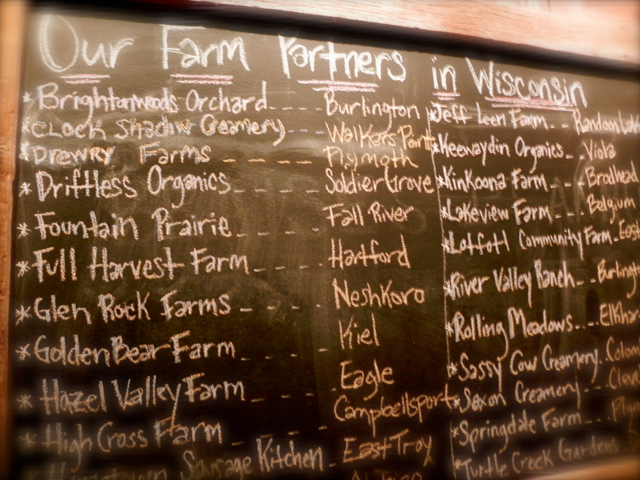 Our Farm Partners in Wisconsin
* Brightonwoods Orchard---- Burlington
* CLOCK Shadow Creamery---- Walkers Point
* DREWRY Farms ----- Plymoth
* Driftless Organics---- Soldier Grove
* Fountain Prairie---- Fall River
* Full Harvest Farm---- Hartford
* Glen Rock Farms ---- Neshkoro
* Golden Bear Farm ---- Kiel
* Hazel Valley Farm---- Eagle
* High Cross Farm ---- Campbellsport
Sausage Kitchen- East Troy
* Jeff Leen Farm--- Random Lake
* Keewaydin Organics-- Viola
* KinKoona Farm--- Brodhead
* Lakeview Farm--- Belgium
* Lotfotl Community Farm- East
* River Valley Ranch-- Burling
* Rolling Meadows--- Elkhar
* Sassy Cow Creamery-- Colom
* Saxon Creamery---- Clev
* Springdale Farm--- 
* Turtle Creek Gardens